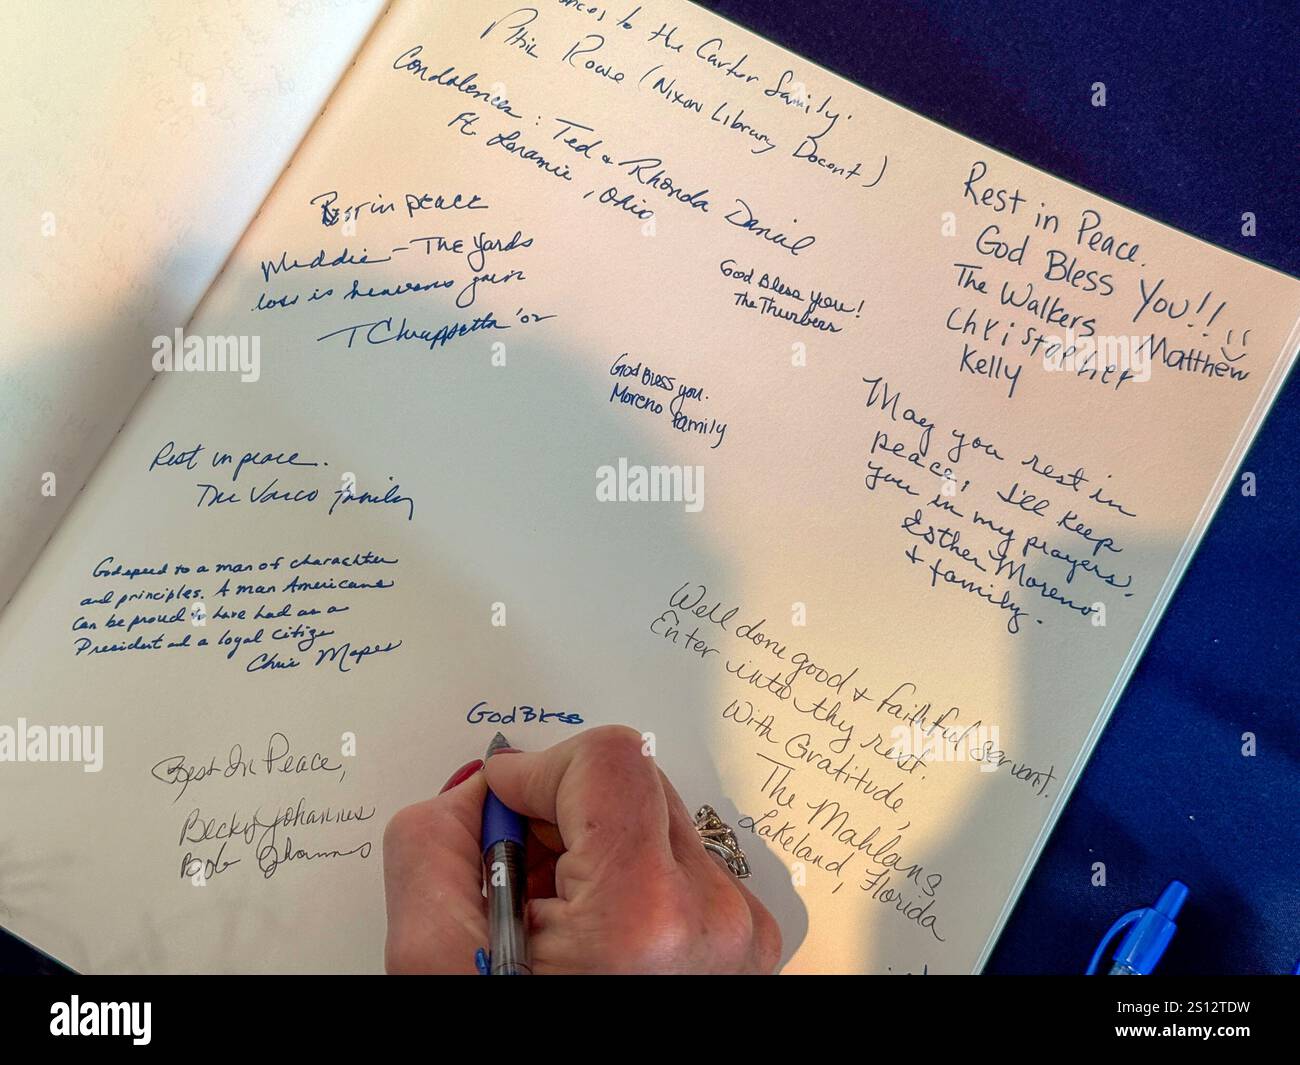 to the Carter family.
Phil Rowe (Nixon Library Docent)
Condolences: Ted & Rhonda Daniel
Ft. Loramie, Ohio
Rest in peace
Maddie - The Yards
loss is heavens gain
T Chiappetta '02
God Bless you!
The Thurbers
God Bless you.
Moreno family
Rest in Peace.
God Bless You!!
The Walkers Matthew
Christopher
Kelly
May you rest in
peace, I'll keep
you in my prayers.
Esther Moreno
& family.
Rest in peace.
The Varco family
Godspeed to a man of charachter
and principles. A man Americans
can be proud to have had as a
President and a loyal citize
Chris Mapes
Well done good & faithful servant.
Enter into thy rest.
With Gratitude,
The Mahlans
Lakeland, Florida
God Bless
Rest In Peace,
Becky Johannes
Bob Johannes
alamy
Image ID: 2S12TDW
www.alamy.com